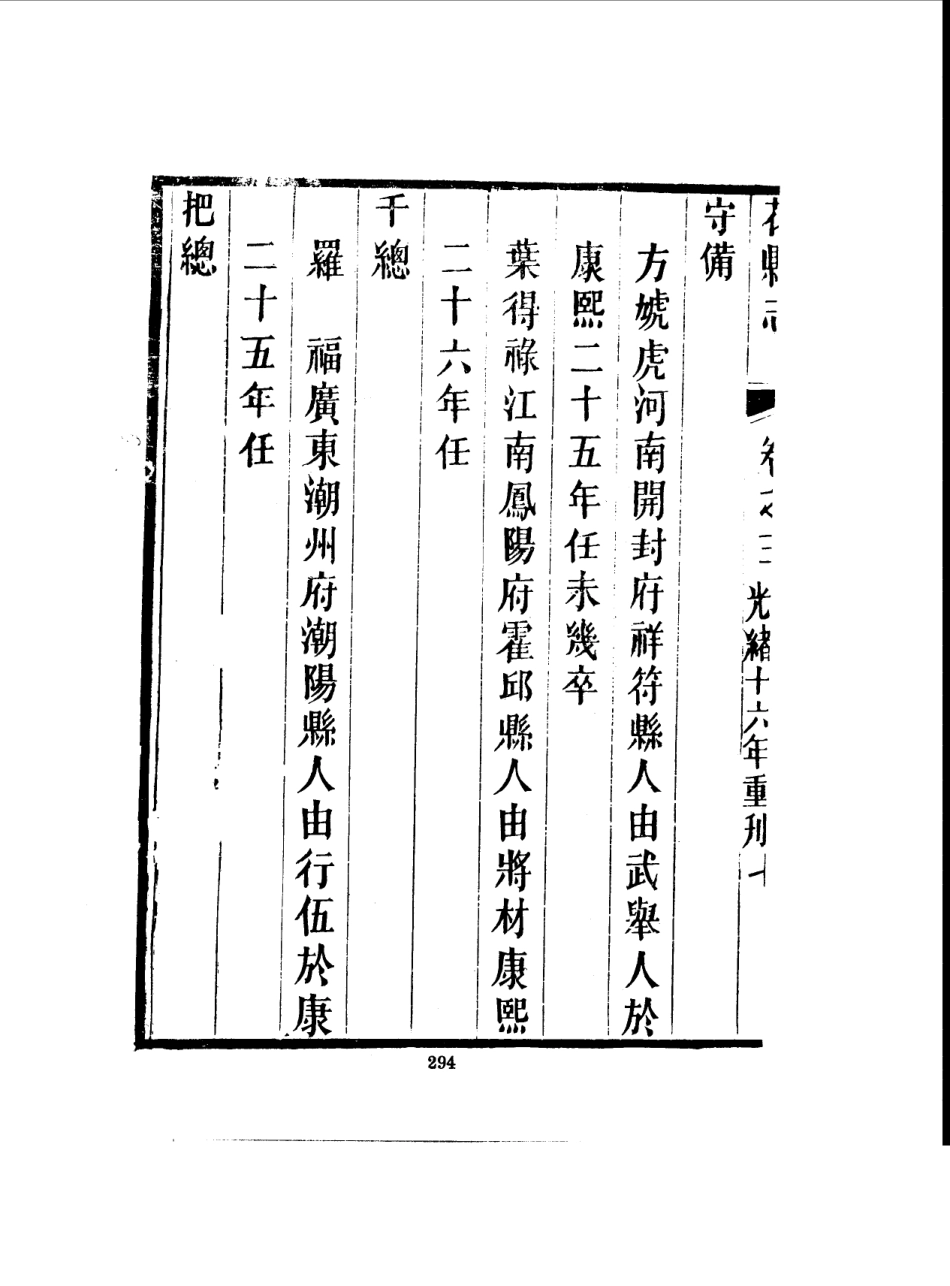 守備
方虓虎河南開封府祥符縣人由武舉人於
康熙二十五年任未幾卒
葉得祿江南鳳陽府霍邱縣人由將材康熙
二十六年任
千總
羅　福廣東潮州府潮陽縣人由行伍於康
二十五年任
把總
光緒十六年重刋
294